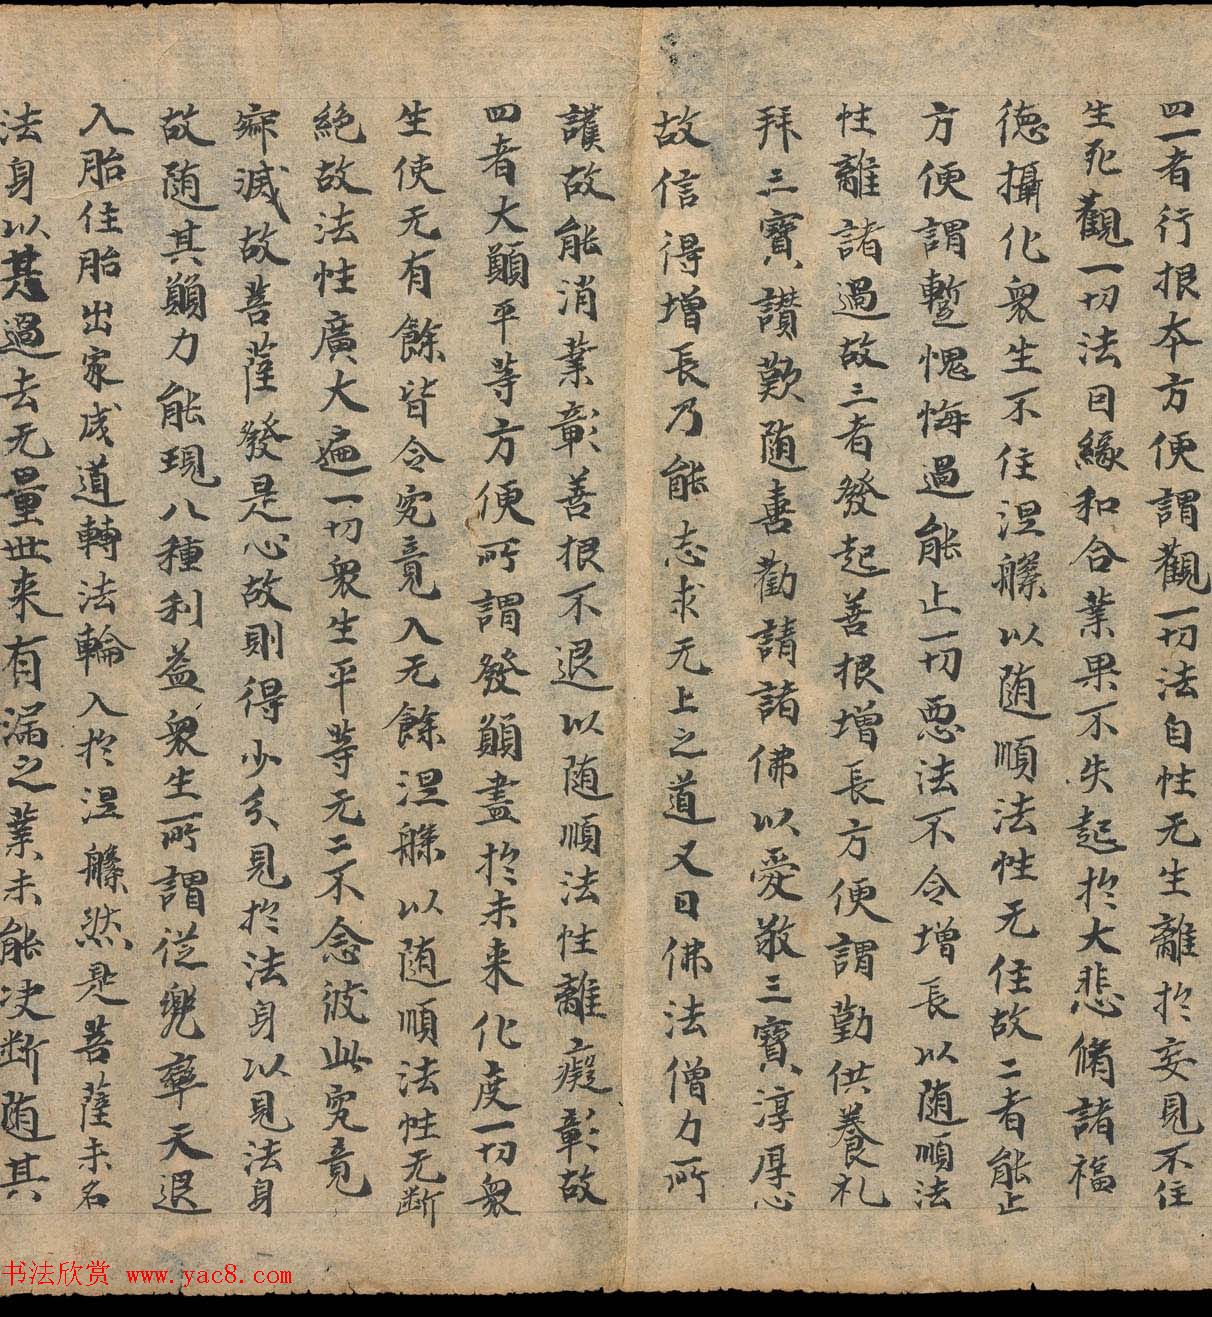 四一者行根本方便謂觀一切法自性无生離於妄見不住
生死觀一切法因緣和合業果不失起於大悲脩諸福
德攝化衆生不住涅槃以随順法性无住故二者能止
方便謂慙愧悔過能止一切惡法不令增長以随順法
性離諸過故三者發起善根增長方便謂勤供養礼
拜三寶讃歎随喜勸請諸佛以愛敬三寶淳厚心
故信得增長乃能志求无上之道又因佛法僧力所
護故能消業彰善根不退以随順法性離癡彰故
四者大願平等方便所謂發願盡於未来化度一切衆
生使无有餘皆令究竟入无餘涅槃以随順法性无断
絶故法性廣大遍一切衆生平等无二不念彼此究竟
寂滅故菩薩發是心故則得少分見於法身以見法身
故随其願力能現八種利益衆生所謂從兜率天退
入胎住胎出家成道轉法輪入於涅槃然是菩薩未名
法身以其過去无量世来有漏之業未能決断随其
书法欣赏 www.yac8.com